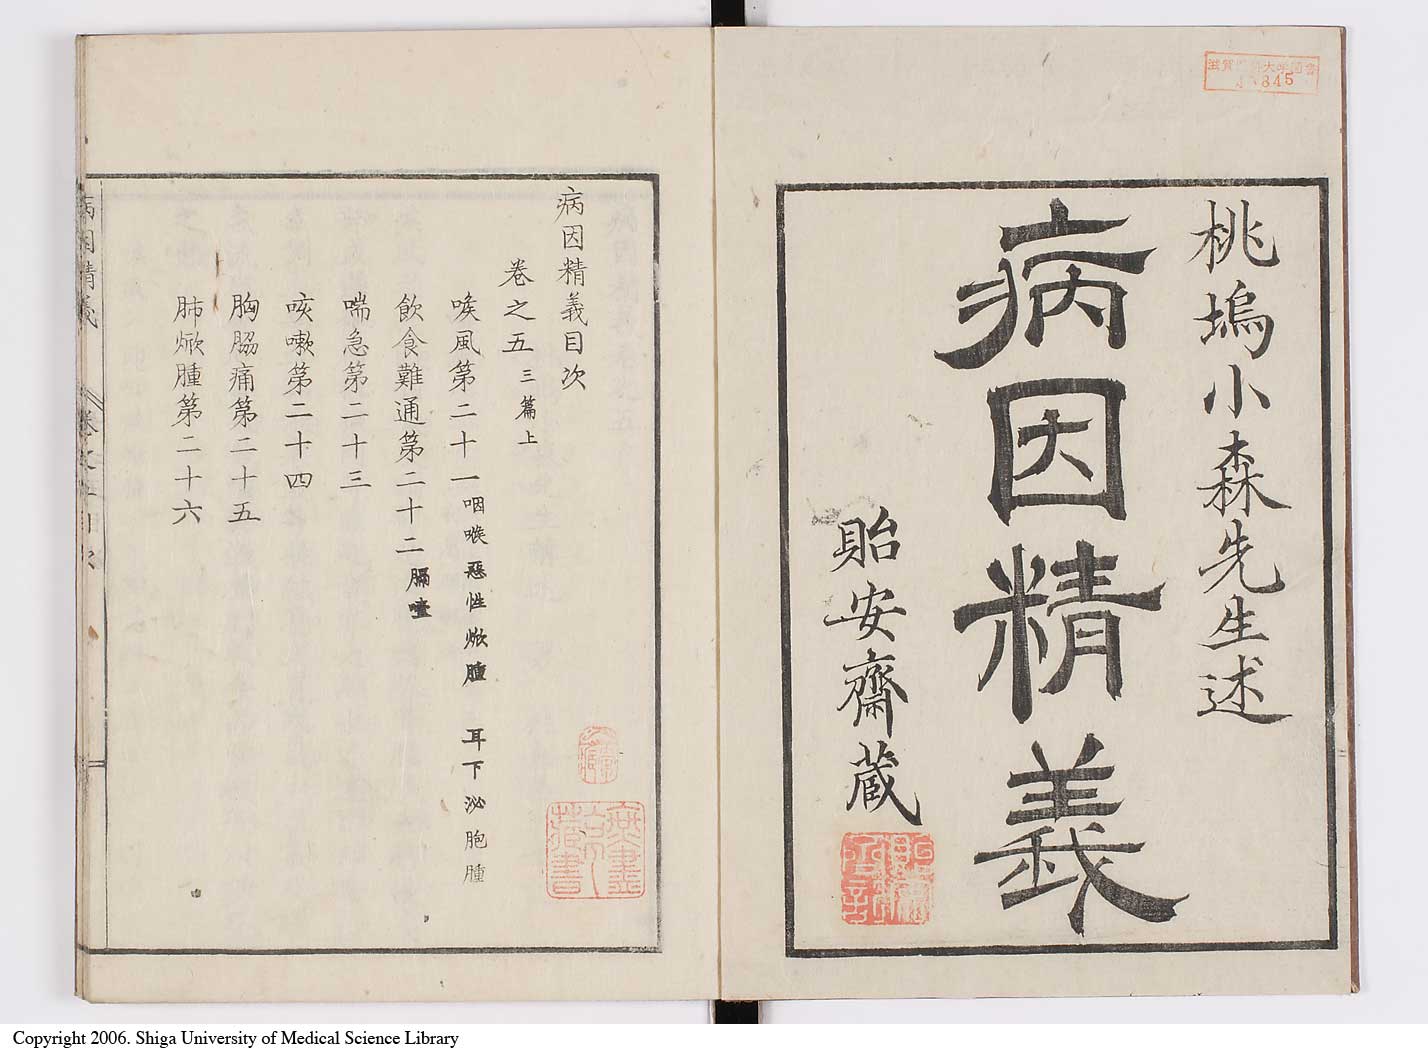 桃塢小森先生述
病因精義
貽安齋蔵
病因精義目次
卷之五 三篇上
喉風第二十一 咽喉惡性焮腫 耳下泌胞腫
飲食難通第二十二 膈噎
喘急第二十三
咳嗽第二十四
胸脇痛第二十五
肺焮腫第二十六
病因精義 卷之五 目次
Copyright 2006. Shiga University of Medical Science Library